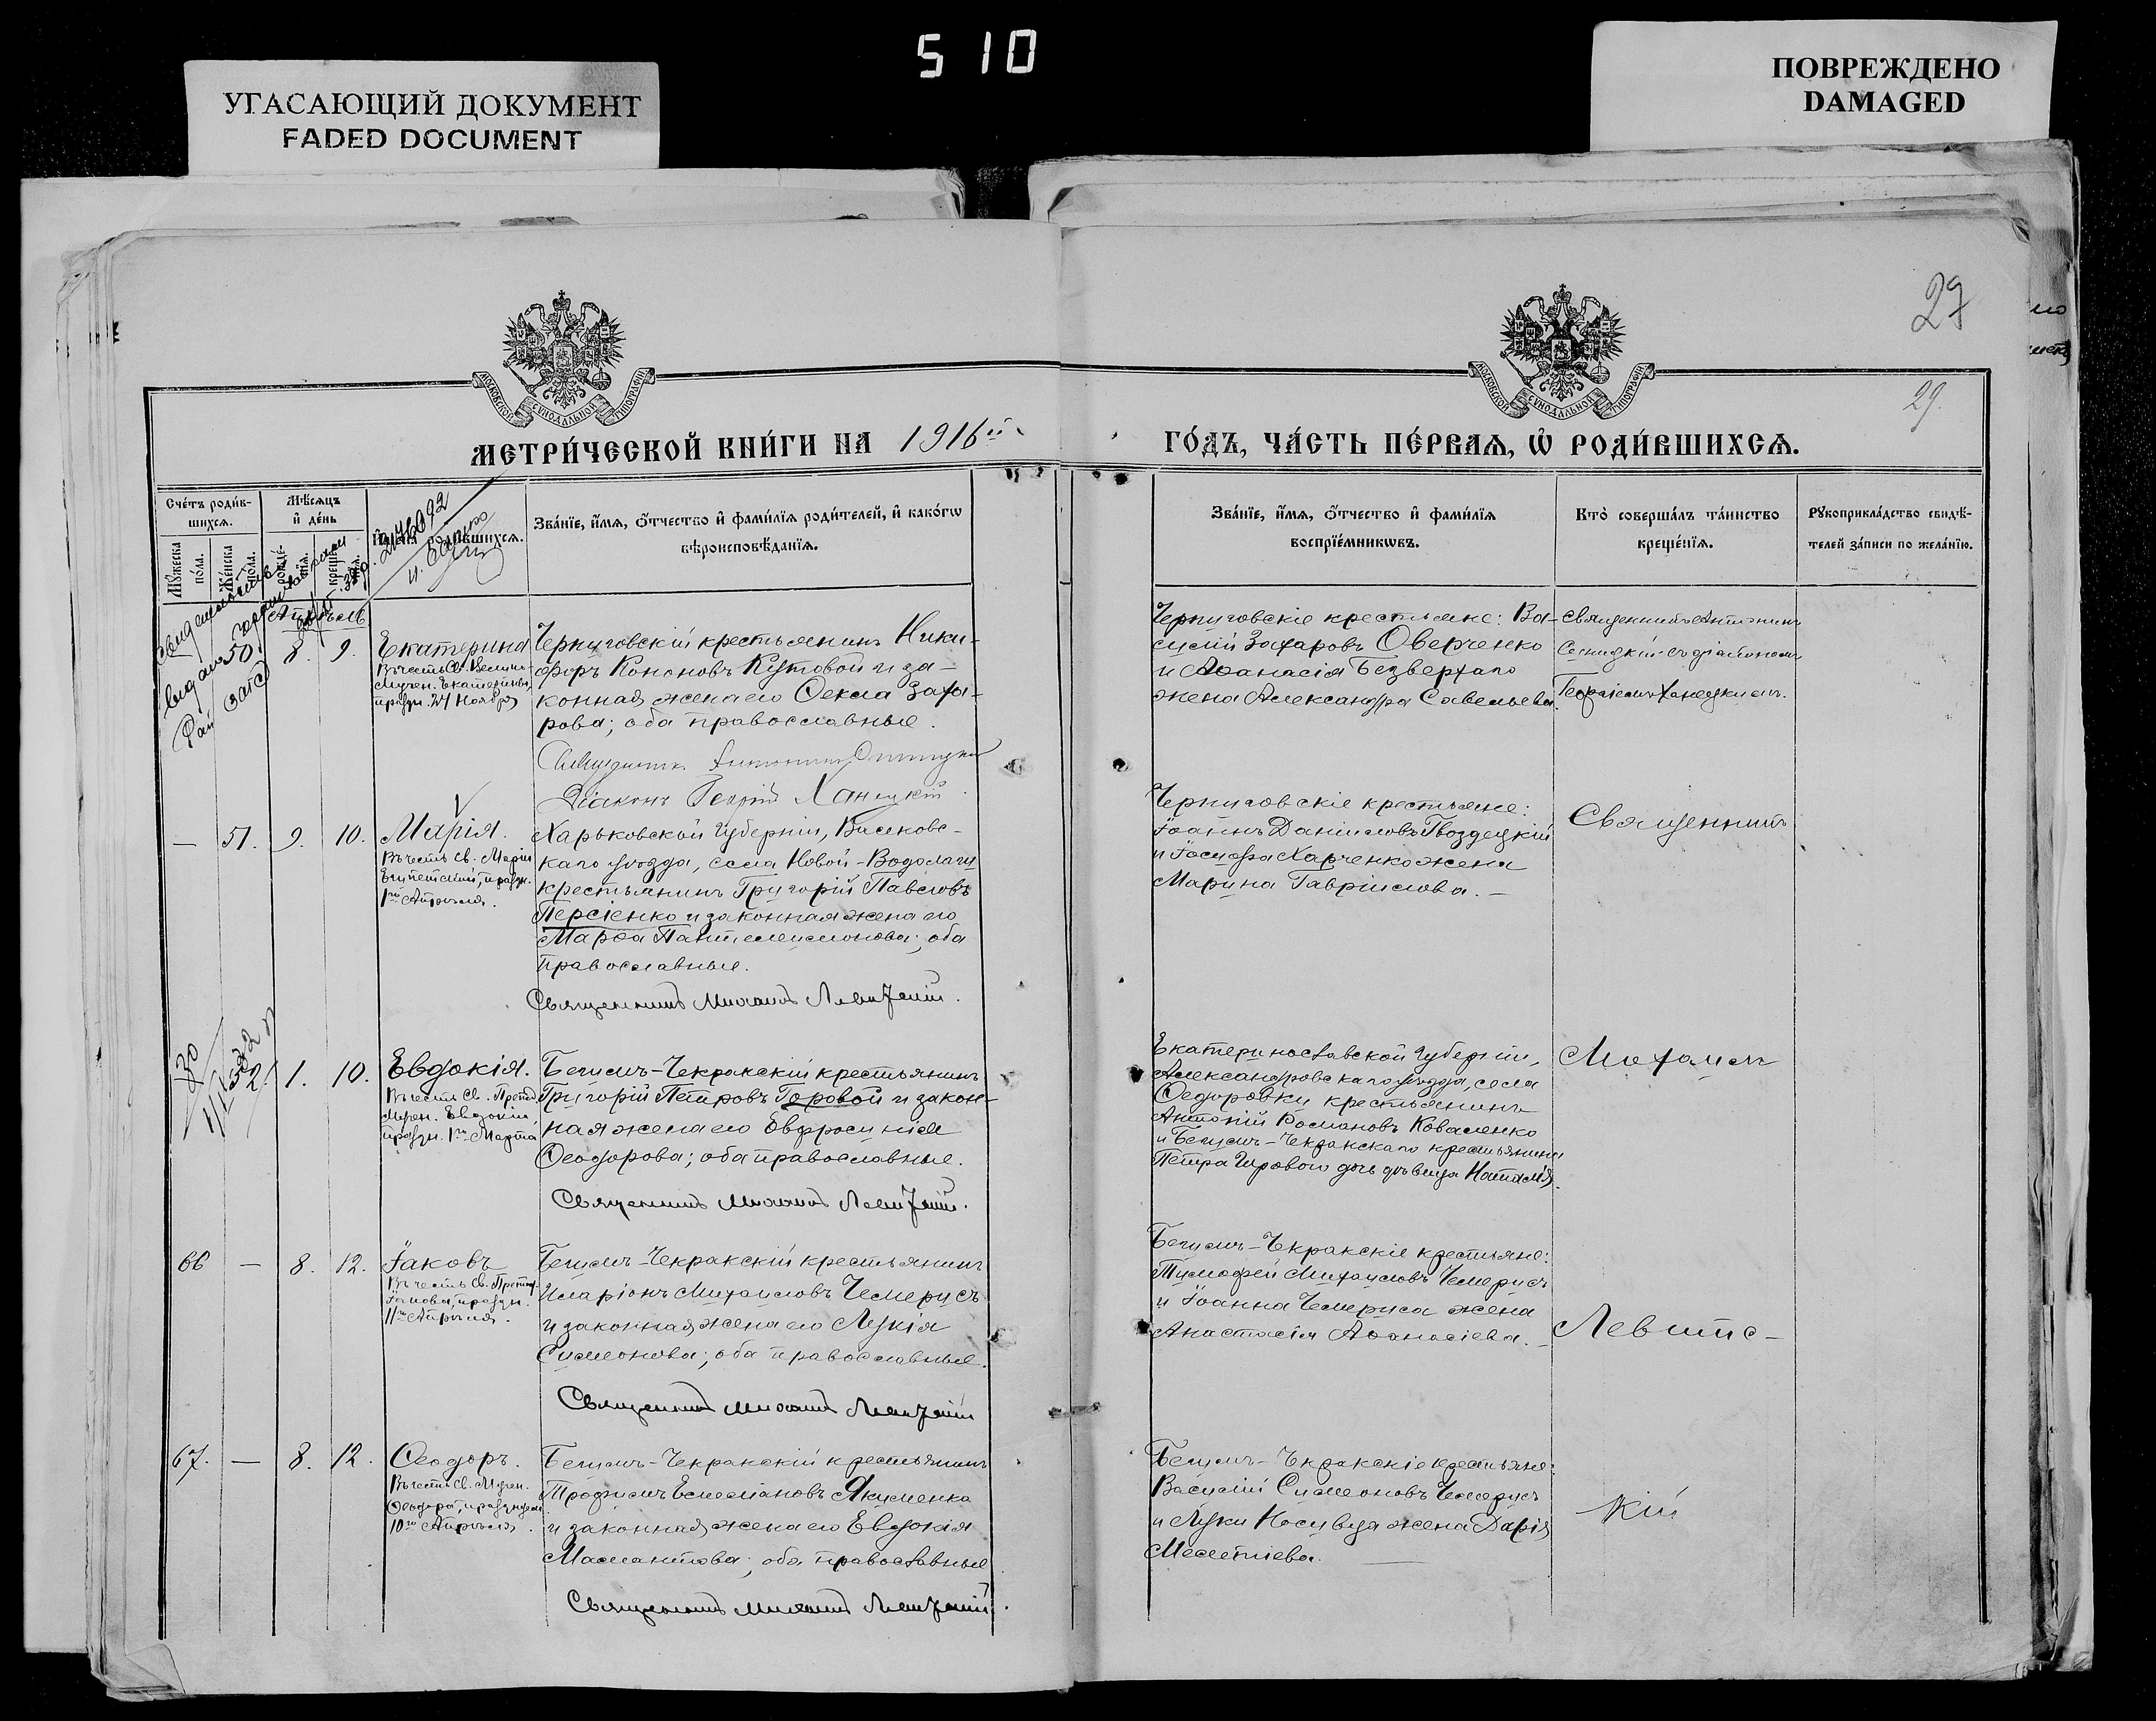 510
УГАСАЮЩИЙ ДОКУМЕНТ
FADED DOCUMENT
ПОВРЕЖДЕНО
DAMAGED
29
29.
МОСКОВСКОЙ СУНОДАЛЬНОЙ ТИПОГРАФІИ
МОСКОВСКОЙ СУНОДАЛЬНОЙ ТИПОГРАФІИ
МЕТРИ́ЧЕСКОЙ КНИ́ГИ НА 1916й
ГО́ДЪ, ЧА́СТЬ ПЕ́РВАѦ, Ѡ҆ РОДИ́ВШИХСѦ.
Сче́тъ роди́в-
шихсѧ.
Мꙋ́жеска
по́ла.
Же́нска
по́ла.
Мѣ́сѧцъ
и҆ де́нь
рожде́-
нїѧ.
креще́-
нїѧ.
роди́вшихсѧ.
Зва́нїе, и҆́мѧ, ѻ҆́тчество и҆ фами́лїѧ роди́телей, и҆ како́гѡ
вѣроисповѣ́данїѧ.
Зва́нїе, и҆́мѧ, ѻ҆́тчество и҆ фами́лїѧ
воспрїе́мникѡвъ.
Кто̀ соверша́лъ та́инство
креще́нїѧ.
Рꙋкоприкла́дство свидѣ́-
телей за́писи по жела́нїю.
Апрѣль
50. 8. 9. Екатерина
Въ честь Св. Велик-
мучен. Екатерины,
празн. 24 Ноября
Черниговскій крестьянинъ Ники-
форъ Кононовъ Кутовой и за-
конная жена его Ѳекла Заха-
рова; оба православные.
Діаконъ Георгій Ханецкій
Черниговскіе крестьяне: Ва-
силій Захаровъ Оверченко
и Аѳанасія Безверхаго
жена Александра Савельева.
Священникъ Антонинъ
съ діакономъ
Георгіемъ Ханецкимъ.
— 51. 9. 10. Марія.
Въ честь Св. Маріи
Египетской, празн.
1го Апрѣля.
Харьковской Губерніи, Валковс-
каго уѣзда, села Новой-Водолаги
крестьянинъ Григорій Павловъ
Персіенко и законная жена его
Марѳа Пантелеимонова; оба
православные.
Священникъ Михаилъ Левитскій.
Черниговскіе крестьяне:
Іоаннъ Даніиловъ Гвоздецкій
и Іосифа Харченко жена
Марина Гавріилова. —
Священникъ
1. 10. Евдокія.
Въ честь Св. Препод.
Мучен. Евдокіи
празн. 1го Марта
Бегимъ-Чекракскій крестьянинъ
Григорій Петровъ Горовой и закон-
ная жена его Евфросинія
Ѳеодорова; оба православные.
Священникъ Михаилъ Левитскій.
Екатеринославской Губерніи,
Александровскаго уѣзда, села
Ѳедоровки крестьянинъ
Антоній Романовъ Коваленко
и Бегимъ-Чекракскаго крестьянина
Петра Горового дочь дѣвица Наталія.
Михаилъ
66 — 8. 12. Іаковъ
Въ честь Св.
Іакова, празн.
11го Апрѣля.
Бегимъ-Чекракскій крестьянинъ
Иларіонъ Михаиловъ Чемерисъ
и законная жена его Лукія
Симеонова; оба православные.
Священникъ Михаилъ Левитскій
Бегимъ-Чекракскіе крестьяне:
Тимофей Михаиловъ Чемерисъ
и Іоанна Чемериса жена
Анастасія Аѳанасіева. —
Левитс-
67. — 8. 12. Ѳеодоръ.
Въ честь Св. Мучен.
Ѳеодора, празнуем.
10го Апрѣля.
Бегимъ-Чекракскій крестьянинъ
Трофимъ Емеліановъ Якименко
и законная жена его Евдокія
Малантова; оба православные
Священникъ Михаилъ Левитскій.
Бегимъ-Чекракскіе крестьяне:
Василій Симеоновъ Чемерисъ
и Луки Носивца жена Дарія
Мелетіева.
кій